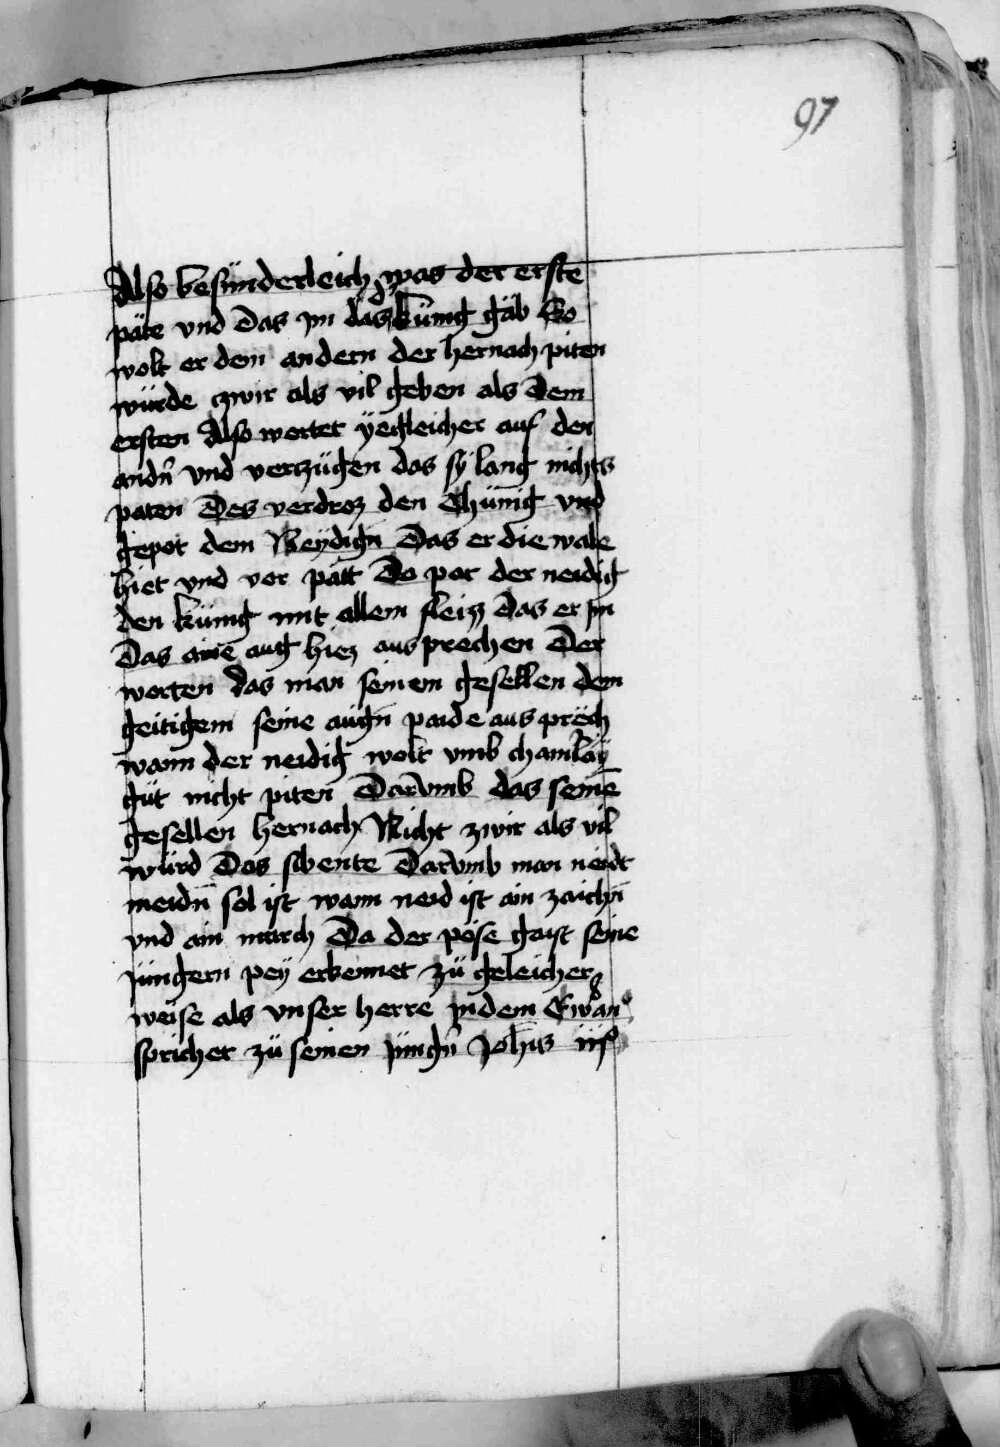 97
Also besünderleich was der erste
päte vnd das jm das d' künig gäb So
wolt er dem andern der hernach piten
würde zwir als vil geben als dem
ersten Also wartet yegleicher auf den
andn̄ vnd verzügen das sy lang nichts
paten Des verdroz den Chünig vnd
gepot dem Neydign̄ Das er die wale
hiet vnd vor pätt Do pot der neidig
den künig mit allem fleizz Das er jm
Das aine aug hiez ausprechen Der
worten das man seinem gesellen dem
geitigem seine augn̄ paide aus prëch
wann der neidig wolt vmb chainläy
güt nicht piten Darvmb das seinē
gesellen hernach Nicht zwir als vil
würd Das sibente Darvmb man neidt
meidn̄ sol ist wann neid ist ain zaichn̄
vnd ain march Da der pöse gaist seine
jüngern pey erkennet zü geleicher
weise als vnser herre in dem Ewan°
sprichet zü seinen jüngn̄ Joh̄is